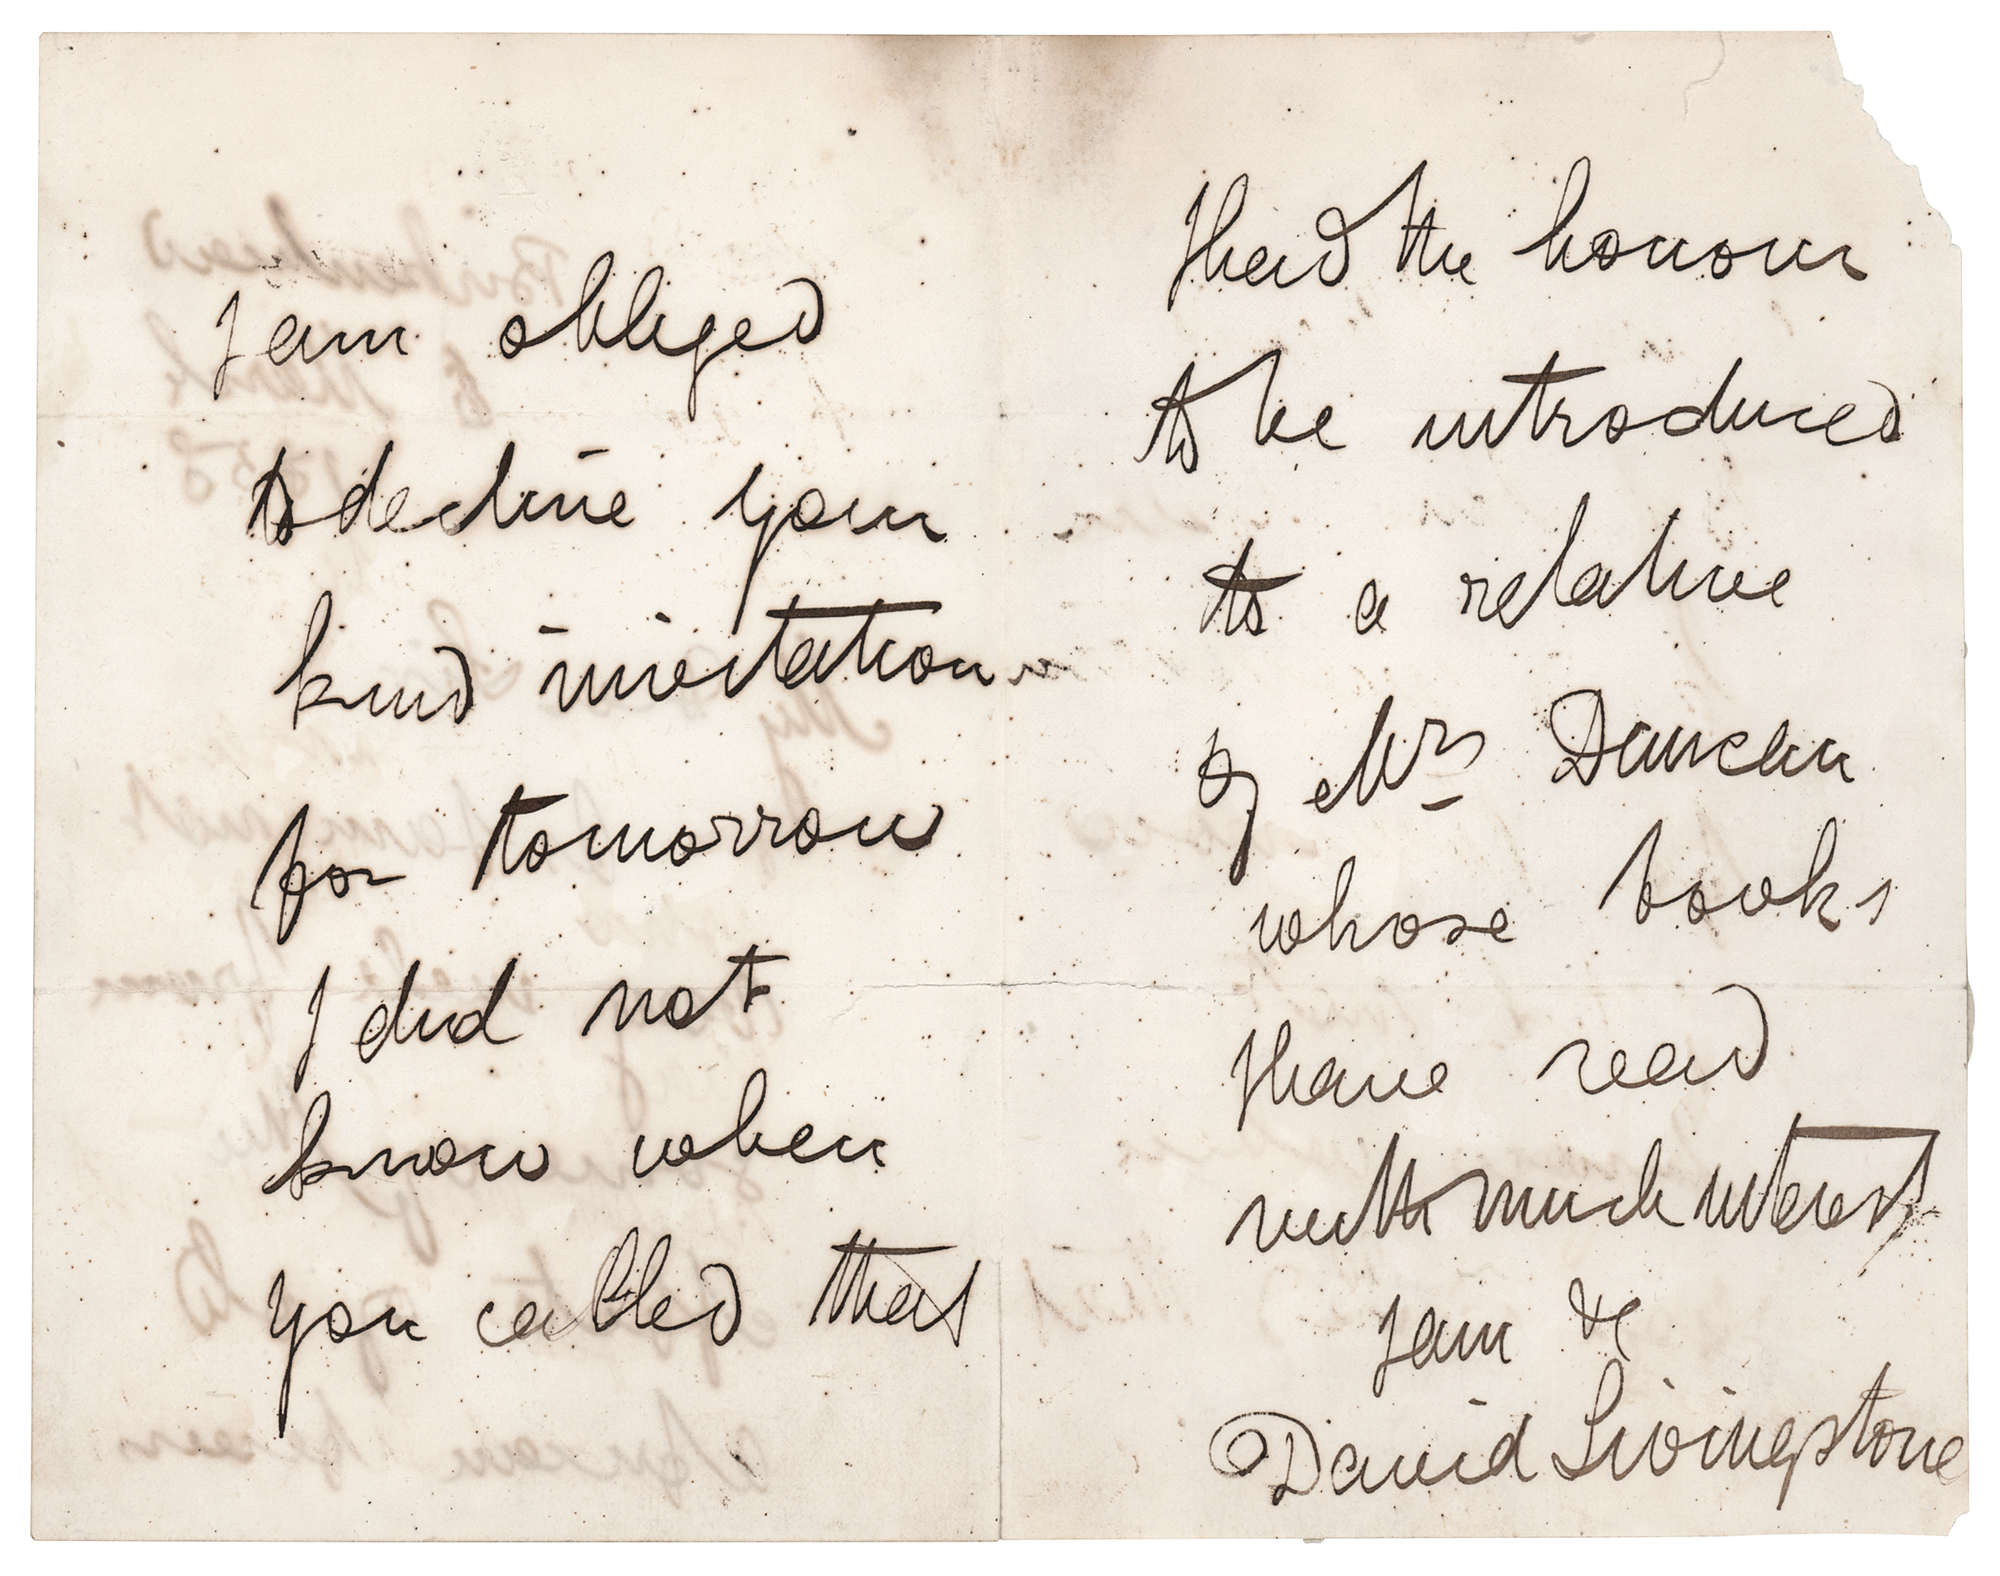 I am obliged
to decline your
kind invitation
for tomorrow
I did not
know when
you called that
I had the honour
to be introduced
to a relative
of Mrs Duncan
whose books
I have read
with much interest
I am &c
David Livingstone